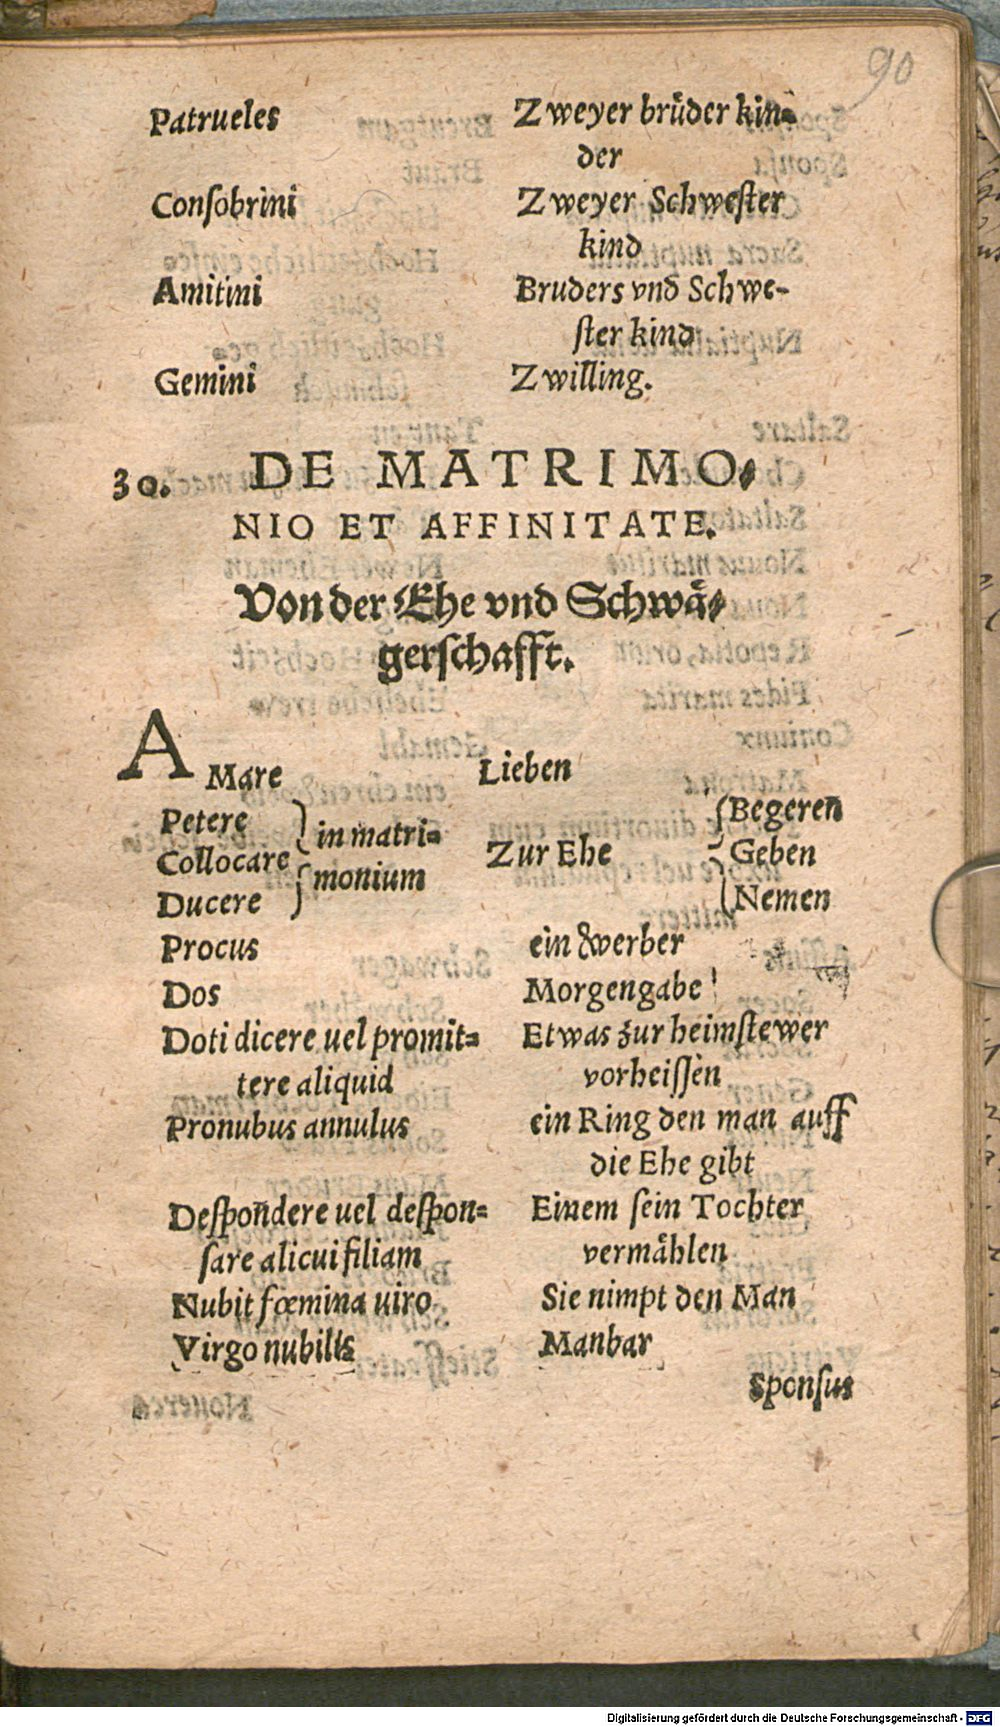 90
Patrueles Zweyer brůder kin⸗
der
Conſobrini Zweyer Schweſter
kind
Amitini Bruders vnd Schwe-
ſter kind
Gemini Zwilling.
30. DE MATRIMO⸗
NIO ET AFFINITATE.
Von der Ehe vnd Schwaͤ⸗
gerſchafft.
AMare Lieben
Petere Begeren
in matri⸗
Collocare Zur Ehe Geben
monium
Ducere Nemen
Procus ein werber
Dos Morgengabe
Doti dicere uel promit⸗ Etwas zur heimſtewer
tere aliquid vorheiſſen
Pronubus annulus ein Ring den man auff
die Ehe gibt
Deſpondere uel deſpon⸗ Einem ſein Tochter
ſare alicui filiam vermaͤhlen
Nubit fœmina uiro Sie nimpt den Man
Virgo nubilis Manbar
Sponſus
Digitalisierung gefördert durch die Deutsche Forschungsgemeinschaft - DFG